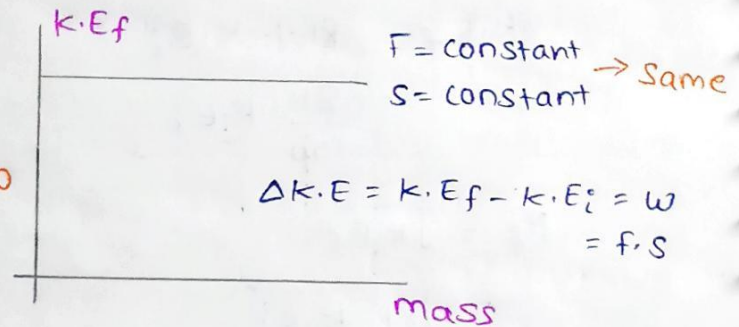 K.Ef
F = constant
S = constant
→ Same
ΔK.E = K.Ef - K.Ei = W
= f.S
mass